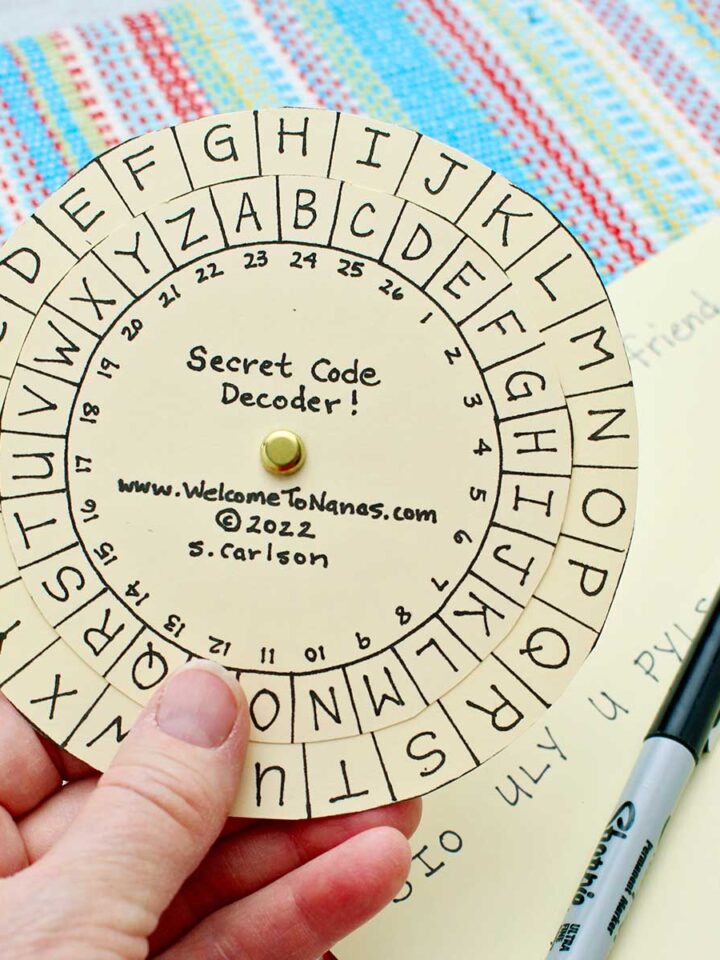 D E F G H I J K L M N O P Q R S T U X
A B C D E F G H I J K L M N O Q R S T U V W X Y Z
1 2 3 4 5 6 7 8 9 10 11 12 13 14 15 16 17 18 19 20 21 22 23 24 25 26
Secret Code
Decoder!
www.WelcomeToNanas.com
©2022
s.carlson
friend
ULY U PYLS
Sharpie
Permanent Marker
ULTRA
FINE